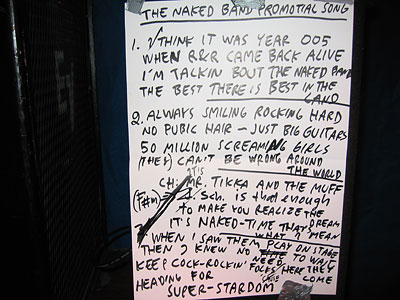 THE NAKED BAND PROMOTIAL SONG
1. I THINK IT WAS YEAR 005
WHEN R&R CAME BACK ALIVE
I'M TALKIN BOUT THE NAKED BAND
THE BEST THERE IS BEST IN THE
LAND
2. ALWAYS SMILING ROCKING HARD
NO PUBIC HAIR – JUST BIG GUITARS
50 MILLION SCREAMING GIRLS
(THEY) CAN'T BE WRONG AROUND
THE WORLD
CH: MR. TIKKA AND THE MUFF
(F#m) Sch. is that enough
TO MAKE YOU REALIZE THE DREAM
IT'S NAKED-TIME THAT
WHAT I MEAN
WHEN I SAW THEM PLAY ON STAGE
THEN I KNEW NO NEED TO WAIT
KEEP COCK-ROCKIN' FOLKS HERE THEY
COME
HEADING FOR
SUPER-STARDOM